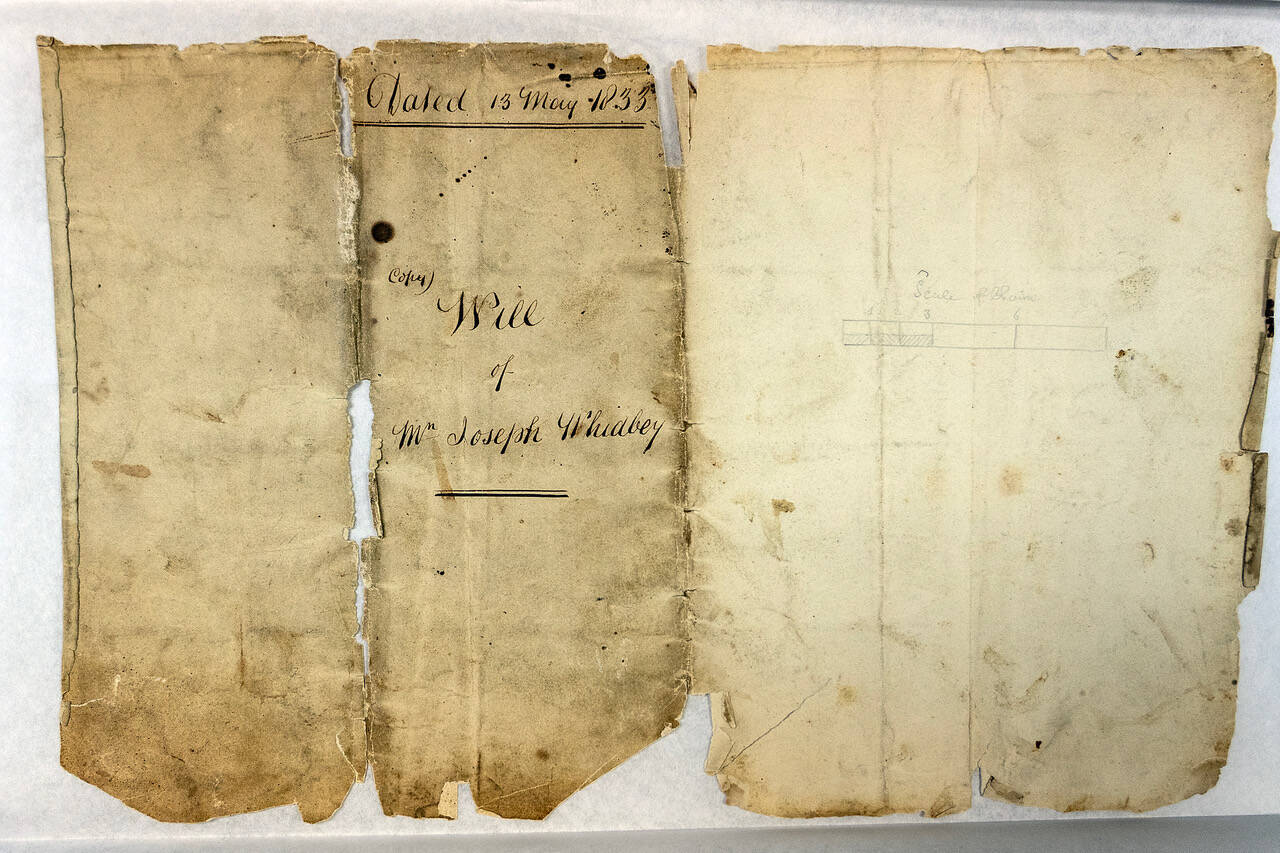 Dated 13 May 1833
(Copy)
Will
of
Mr Joseph Whidbey
Scale of Chains
1 2 3 6